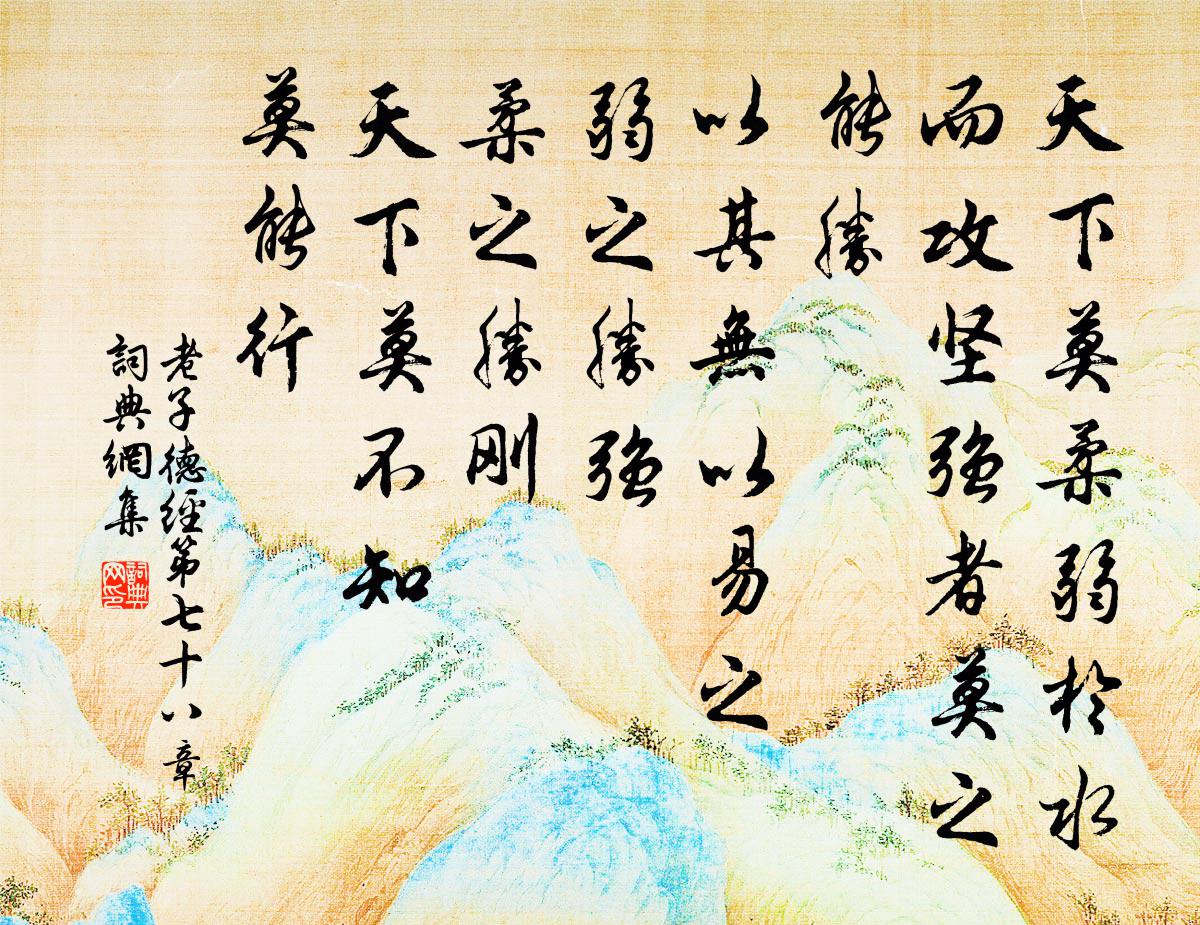 天下莫柔弱於水
而攻坚强者莫之
能勝
以其無以易之
弱之勝强
柔之勝刚
天下莫不知
莫能行
老子德經第七十八章
詞典網集
詞典
网印